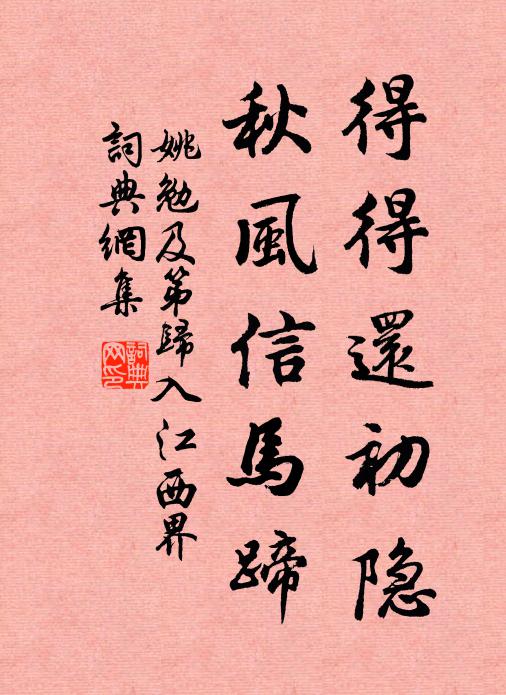 得得還初隐
秋風信馬蹄
姚勉及第歸入江西界
詞典網集
詞典网印